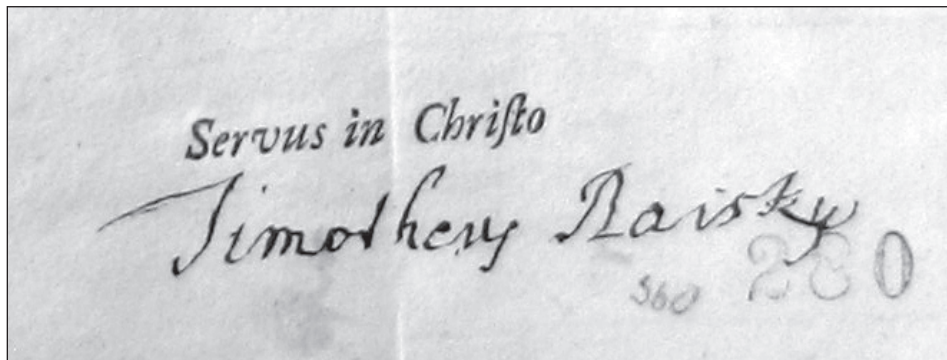 Servus in Chriſto
Timotheus Raisky